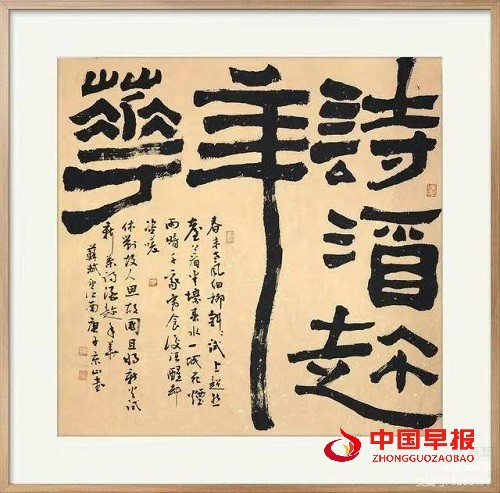 詩酒趁
年
華
春未老風細柳斜〻試上超然
臺上看半壕春水一城花煙
雨暗千家寒食後酒醒卻
咨嗟
休對故人思故國且將新火試
新茶詩酒趁年華
蘇軾望江南庚子京山書
中国早报
ZHONGGUOZAOBAO